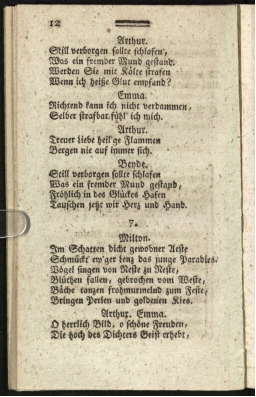 12
Arthur.
Still verborgen sollte schlafen,
Was ein fremder Mund gestand.
Werden Sie mit Kälte strafen
Wenn ich heiße Glut empfand?
Emma.
Richtend kann ich nicht verdammen,
Selber strafbar fühl' ich mich.
Arthur.
Treuer Liebe heil'ge Flammen
Bergen nie auf immer sich.
Beyde.
Still verborgen sollte schlafen
Was ein fremder Mund gestand,
Fröhlich in des Glückes Hafen
Tauschen jetzt wir Herz und Hand.
7.
Milton.
Im Schatten dicht gewobner Aeste
Schmückt ew'ger Lenz das junge Paradies.
Vögel singen von Neste zu Neste,
Blüthen fallen, gebrochen vom Weste,
Bäche tanzen frohmurmelnd zum Feste,
Bringen Perlen und goldenen Kies.
Arthur. Emma.
O herrlich Bild, o schöne Freuden,
Die hoch des Dichters Geist erhebt,